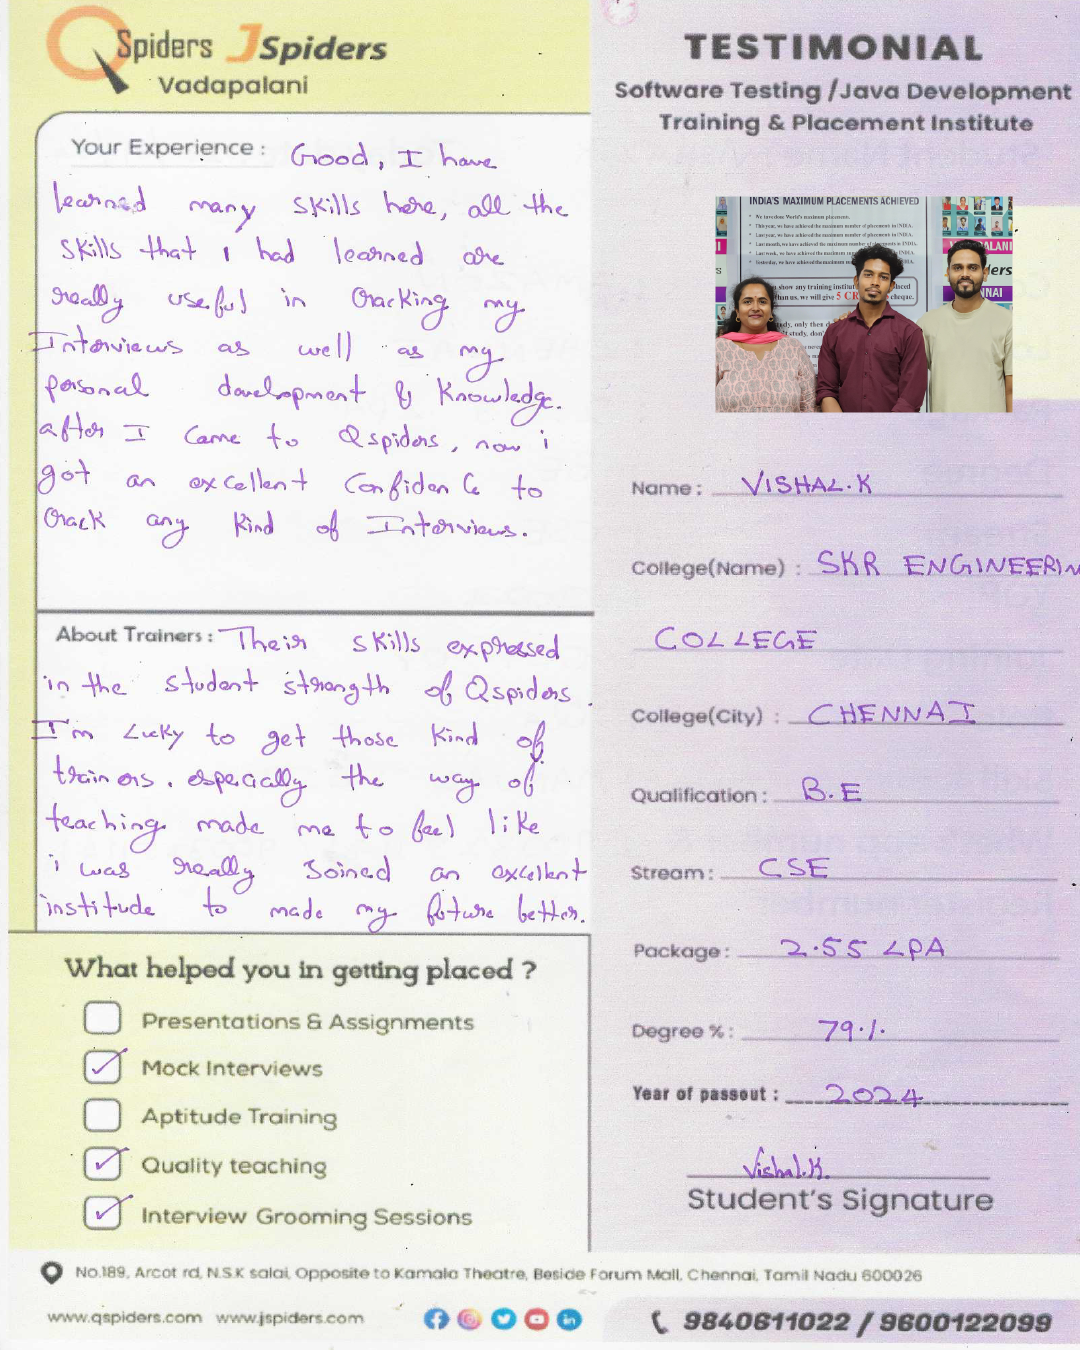 QSpiders JSpiders
Vadapalani
Your Experience : Good, I have
learned many skills here, all the
skills that I had learned are
really useful in cracking my
Interviews as well as my
personal development & Knowledge.
after I came to Qspiders, now i
got an excellent confidence to
crack any kind of Interviews.
About Trainers : Their skills expressed
in the student strength of Qspiders.
I'm Lucky to get those kind of
trainers. especially the way of
teaching made me to feel like
i was really Joined an excellent
institude to made my future better.
What helped you in getting placed ?
Presentations & Assignments
Mock Interviews
Aptitude Training
Quality teaching
Interview Grooming Sessions
TESTIMONIAL
Software Testing /Java Development
Training & Placement Institute
INDIA'S MAXIMUM PLACEMENTS ACHIEVED
Name : VISHAL.K
College(Name) : SKR ENGINEERIN
COLLEGE
College(City) : CHENNAI
Qualification : B.E
Stream : CSE
Package : 2.55 LPA
Degree % : 79%
Year of passout : 2024
Vishal.K.
Student's Signature
No.189, Arcot rd, N.S.K salai, Opposite to Kamala Theatre, Beside Forum Mall, Chennai, Tamil Nadu 600026
www.qspiders.com www.jspiders.com
9840611022 / 9600122099